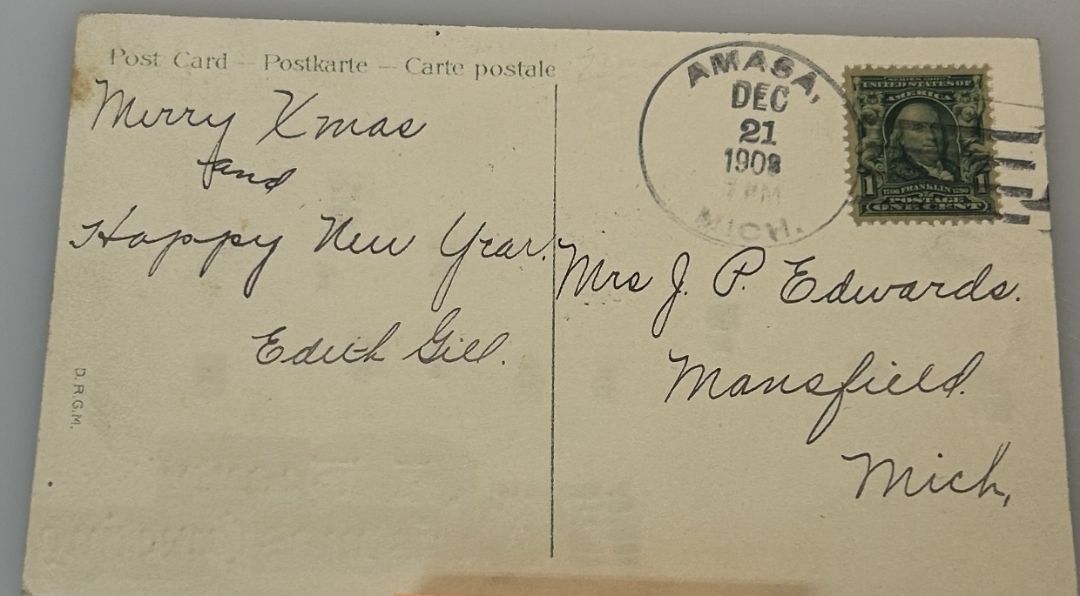 Post Card — Postkarte — Carte postale
Merry Xmas
and
Happy New Year.
Edith Gill.
D.R.G.M.
AMASA,
DEC
21
1908
7 PM
MICH.
SERIES 1902
UNITED STATES OF
AMERICA
1 1706 FRANKLIN 1790 1
POSTAGE
ONE CENT
Mrs J. P. Edwards.
Mansfield.
Mich,